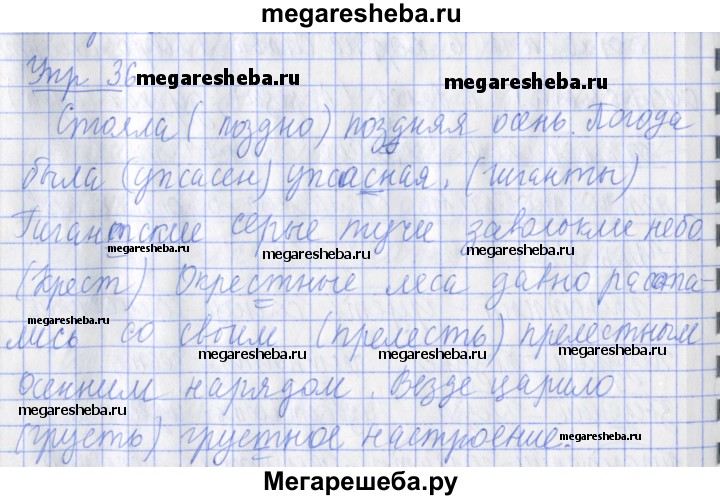 megaresheba.ru
Упр 36
megaresheba.ru
megaresheba.ru
Стояла ( поздно) поздняя осень. Погода
была (ужасен) ужасная. (гиганты)
Гигантские серые тучи заволокли небо
megaresheba.ru
megaresheba.ru
megaresheba.ru
(Крест) Окрестные леса давно расста-
лись со своим (прелесть) прелестным
megaresheba.ru
megaresheba.ru
megaresheba.ru
осенним нарядом. Везде царило
megaresheba.ru
(грусть) грустное настроение.
megaresheba.ru
megaresheba.ru
Мегарешеба.ру